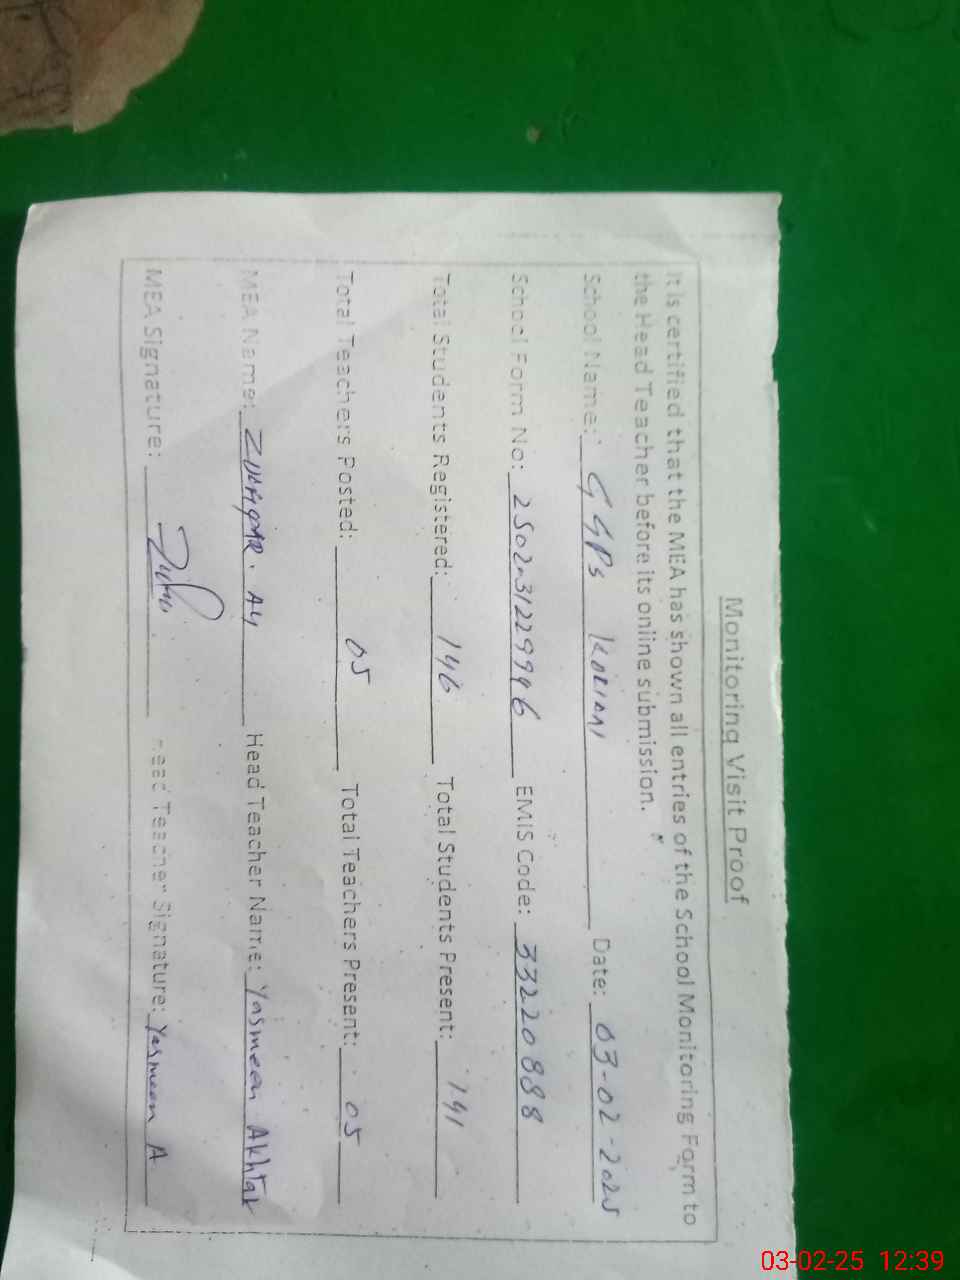 Monitoring Visit Proof
It is certified that the MEA has shown all entries of the School Monitoring Form to
the Head Teacher before its online submission.
School Name: GGPS KORIAN Date: 03-02-2025
School Form No: EMIS Code: 33220888
Total Students Registered: 146 Total Students Present: 141
Total Teachers Posted: 05 Total Teachers Present: 05
MEA Name: ZULFIQAR. Ali Head Teacher Name: Yasmeen Akhtar
MEA Signature: Head Teacher Signature: Yasmeen A
03-02-25 12:39